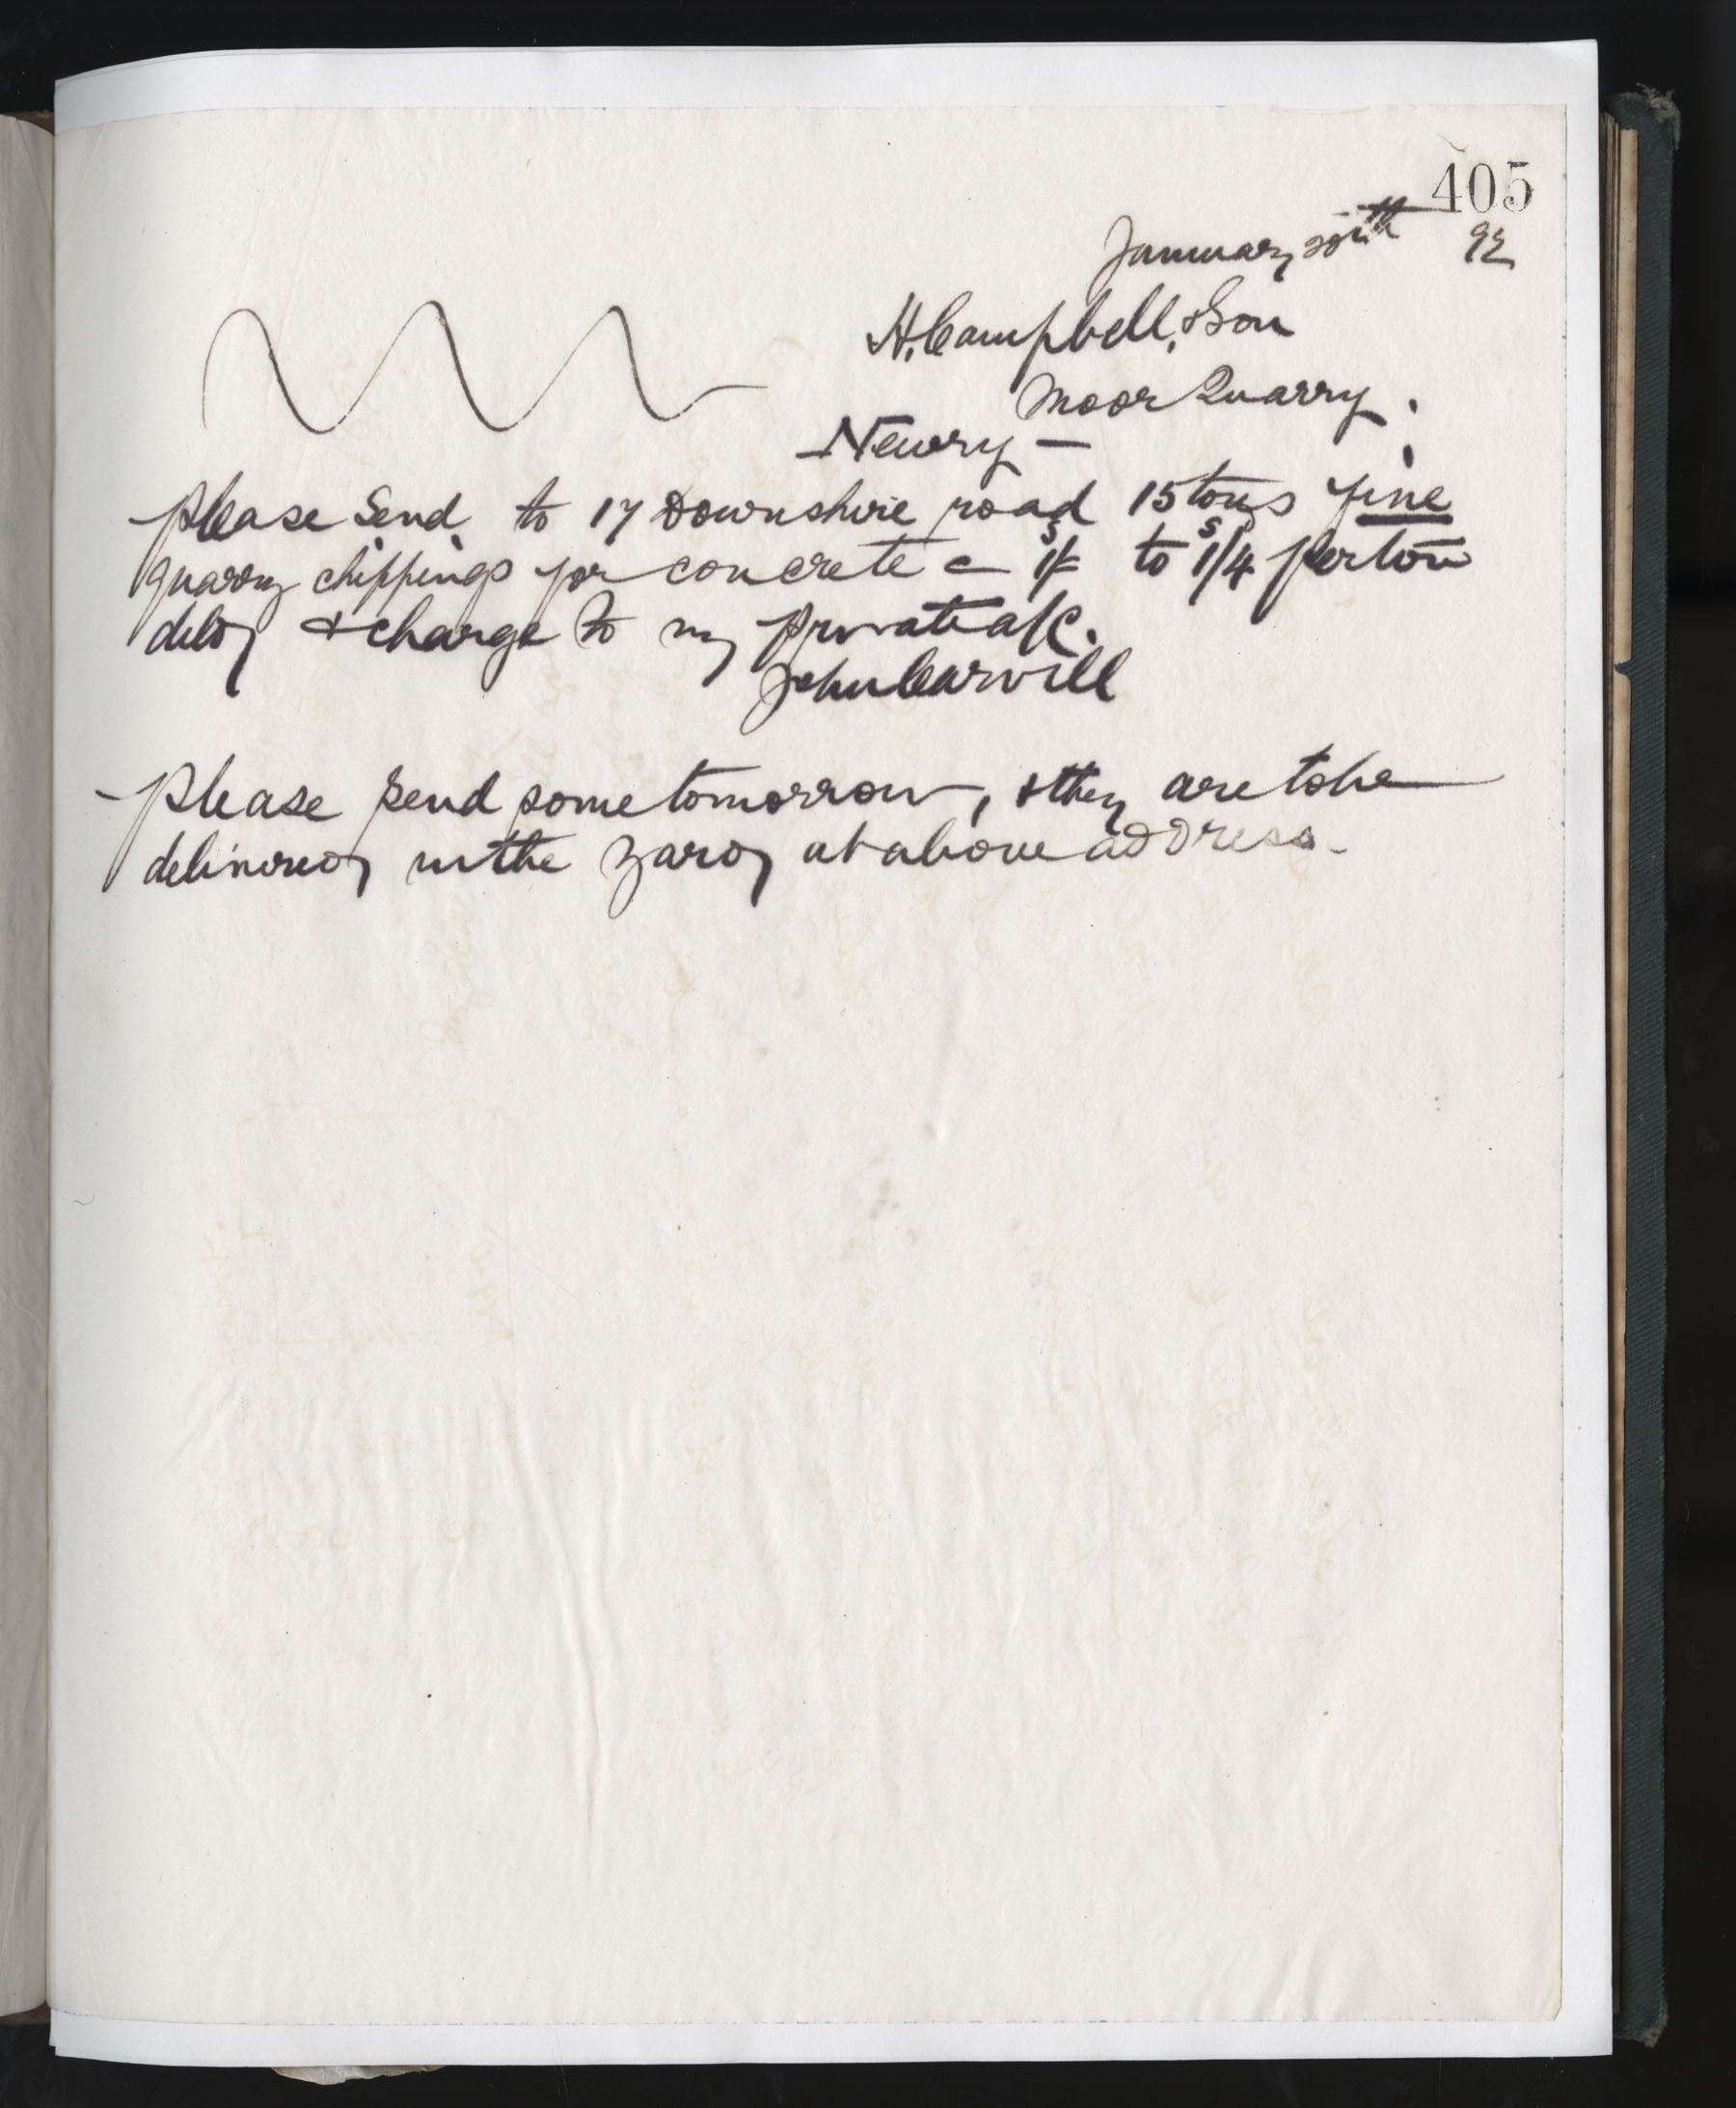 405
January 20th 92
H. Campbell, & Son
Moor Quarry.
Newry —
Please Send to 17 Downshire road 15 tons fine
quarry chippings for concrete @ 1s/- to 1s/4 per ton
deld & charge to my private a/c.
John Carvill
Please send some tomorrow, & they are to be
delivered in the yard at above address.